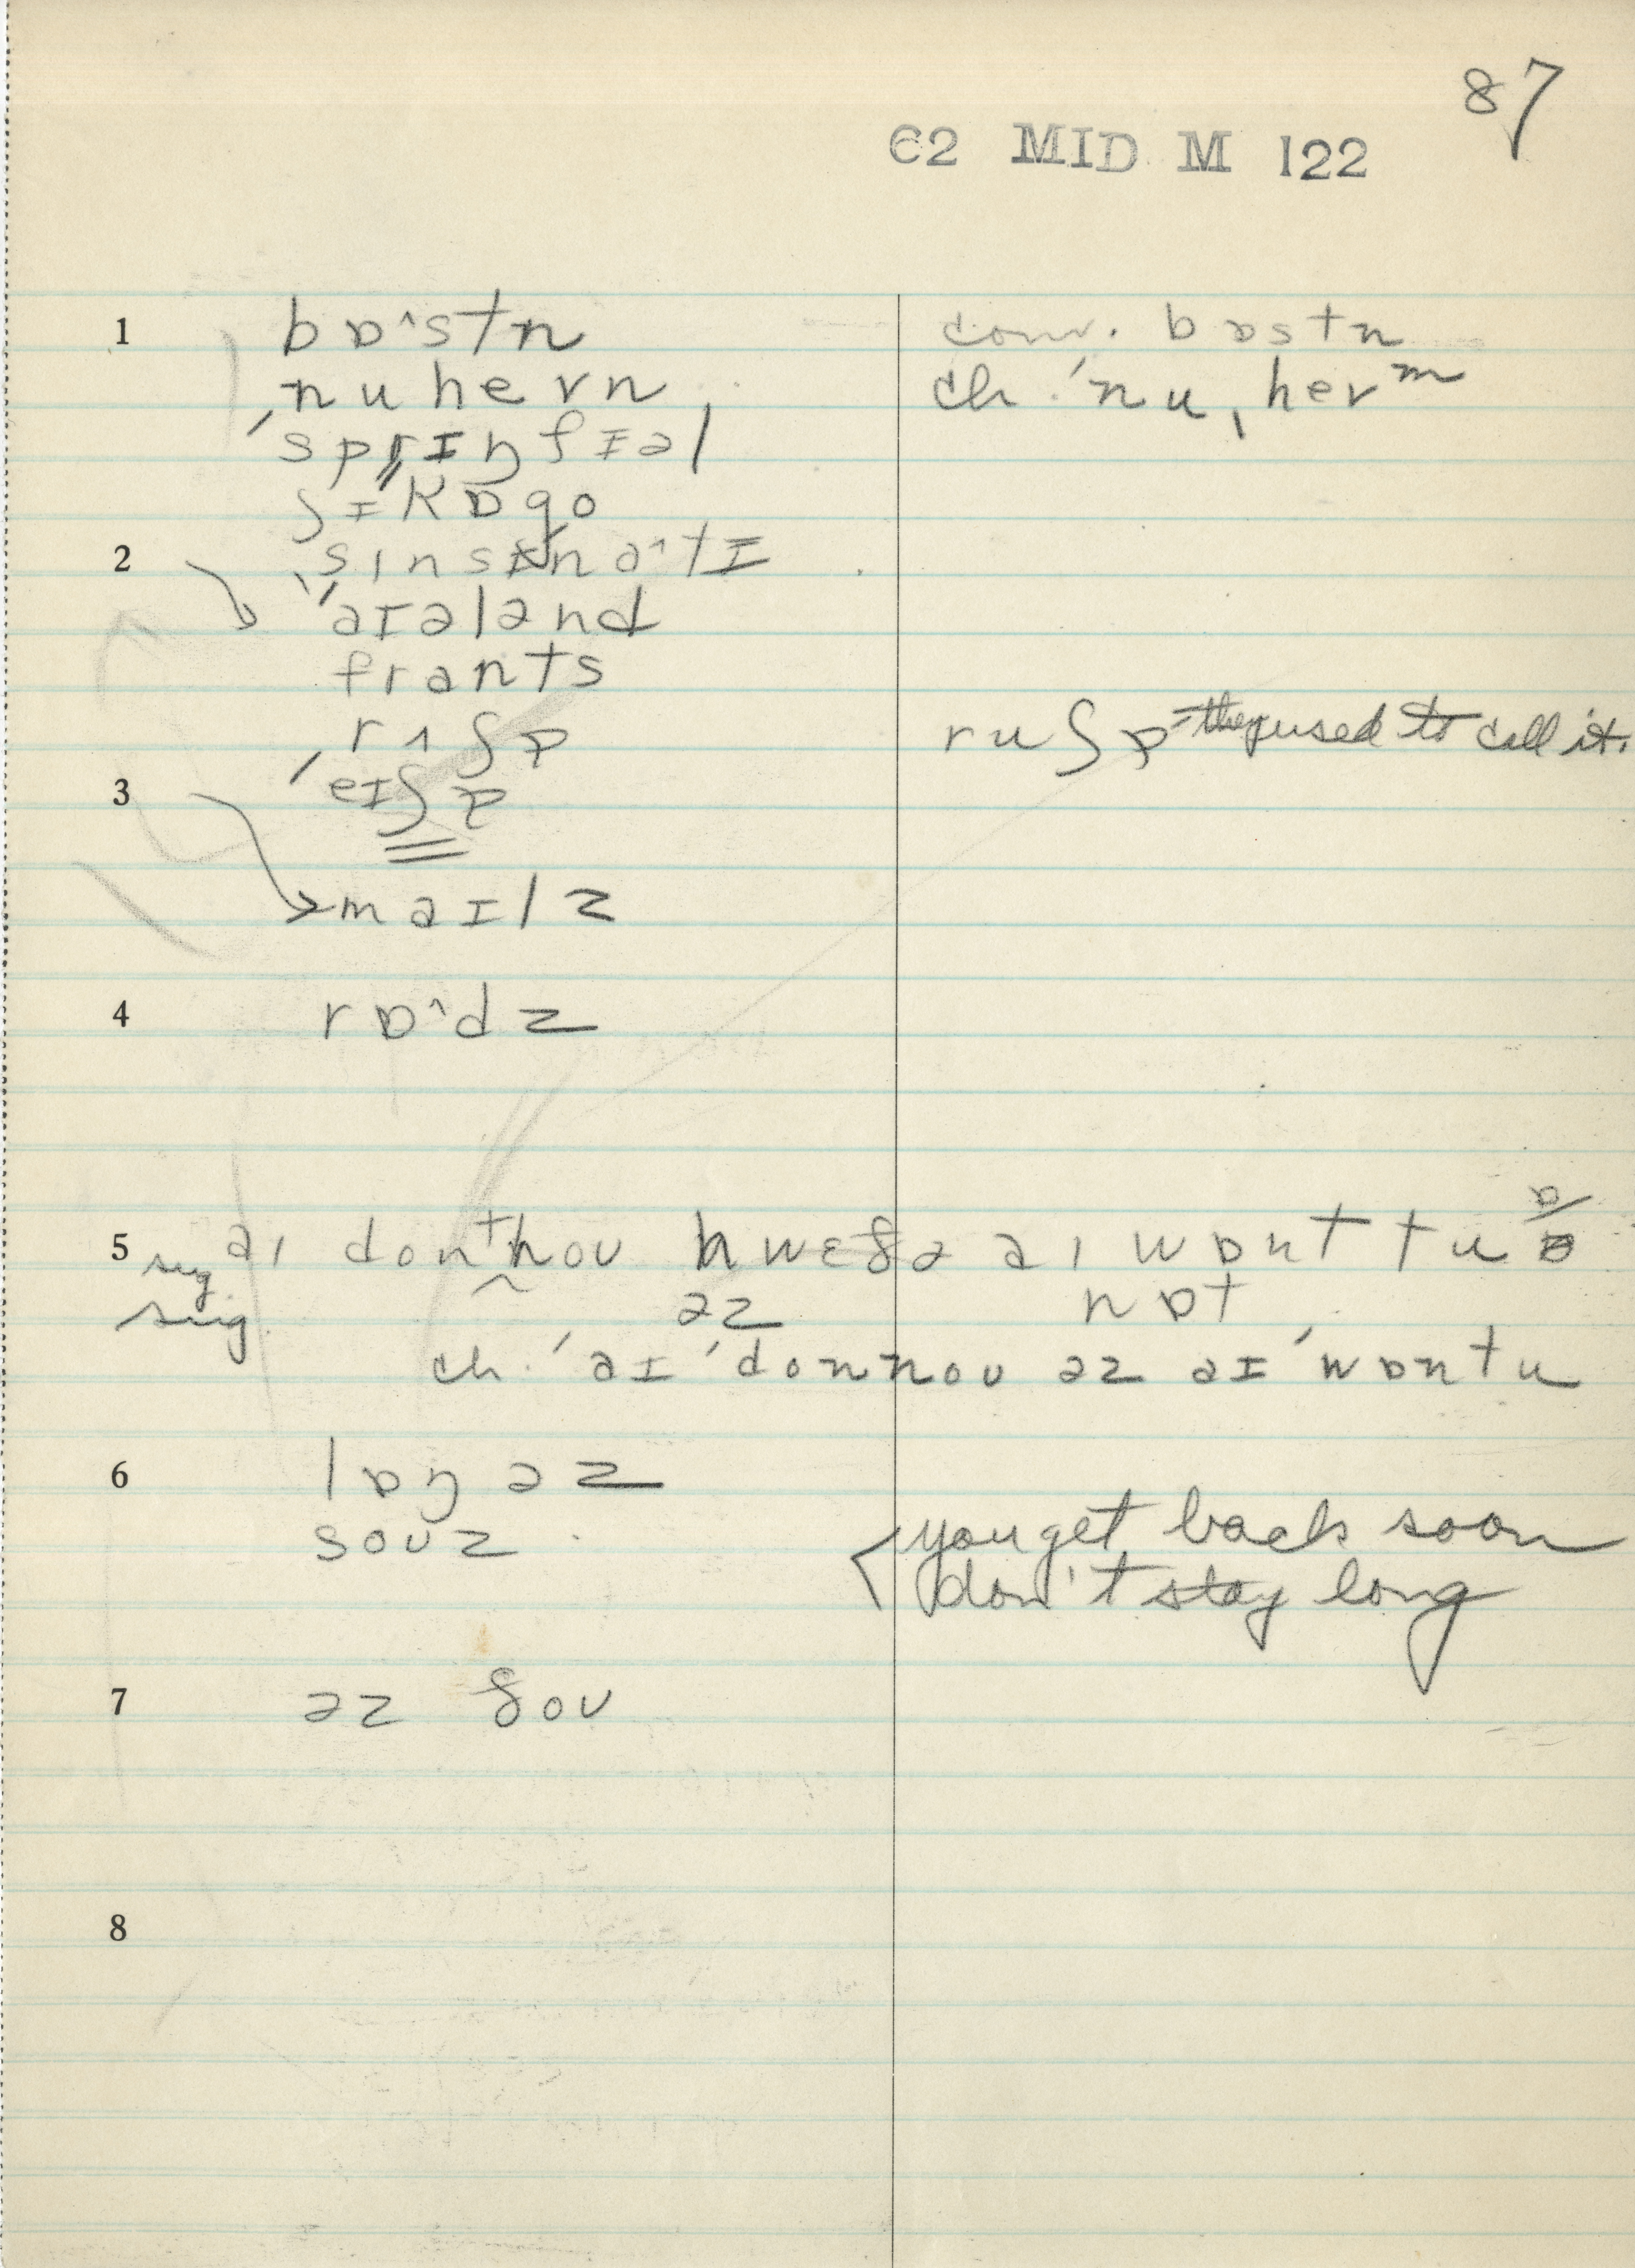 87
62 MID M 122
1 bɒ^stn conv. bɒstn
nuhevn ch. ˈnu,hevm
ˈsprɪŋfɪəl
ʃɪkɒgo
2 ˌsɪnsɪnɑ^tɪ
ˈaɪələnd
frants
rʌʃɚ ruʃɚ they used to call it.
3 ˈeɪʃɚ
maɪlz
4 rɒ^dz
5 sug. aɪ dontnoʊ hwɛðə aɪ wɒnt tu ɒ
sug. əz nɒt
ch. ˈaɪ ˈdonnoʊ əz aɪ ˈwɒntu
6 lɒŋ əz
soʊz you get back soon
don't stay long
7 əz ðoʊ
8